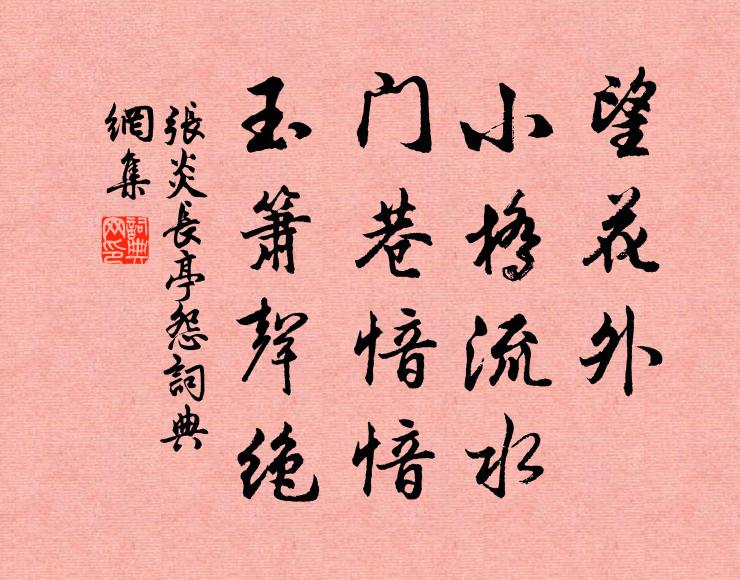 望花外
小橋流水
门巷愔愔
玉箫聲絶
張炎長亭怨詞典
網集
詞典
网印